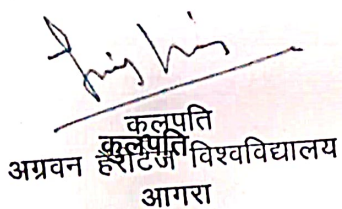 कुलपति
कुलपति
अग्रवन हैरीटेज विश्वविद्यालय
आगरा